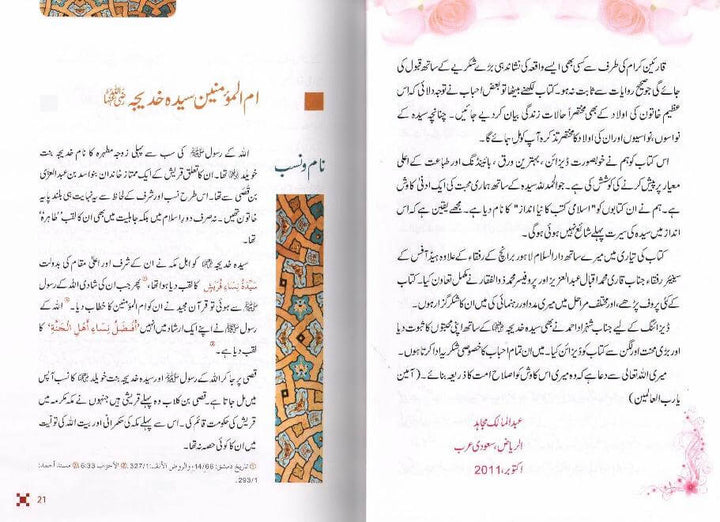 قارئین کرام کی طرف سے کسی بھی ایسے واقعہ کی نشاندہی بڑے شکریے کے ساتھ قبول کی
جائے گی جو صحیح روایات سے ثابت نہ ہو۔ کتاب لکھنے بیٹھا تو بعض احباب نے توجہ دلائی کہ اس
عظیم خاتون کی اولاد کے بھی مختصراً حالات زندگی بیان کر دیے جائیں۔ چنانچہ سیدہ کے
نواسوں، نواسیوں اور ان کی اولاد کا مختصر تذکرہ آپ کو مل جائے گا۔
اس کتاب کو ہم نے خوبصورت ڈیزائن، بہترین ورق، بائینڈنگ اور طباعت کے اعلی
معیار پر پیش کرنے کی کوشش کی ہے۔ جو الحمدللہ سیدہ کے ساتھ ہماری محبت کی ایک ادنی کاوش
ہے۔ ہم نے ان کتابوں کو "اسلامی کتب کا نیا انداز" کا نام دیا ہے۔ مجھے یقین ہے کہ اس
انداز میں سیدہ کی سیرت پہلے شائع نہیں ہوئی ہوگی۔
کتاب کی تیاری میں میرے ساتھ دارالسلام لاہور برانچ کے رفقاء کے علاوہ ہیڈ آفس کے
سینیئر رفقاء جناب قاری محمد اقبال عبدالعزیز اور پروفیسر محمد ذوالفقار نے مکمل تعاون کیا۔ کتاب
کے کئی پروف پڑھے، اور مختلف مراحل میں میری مدد اور رہنمائی کی میں ان کا شکر گزار ہوں۔
ڈیزائننگ کے لیے جناب شہزاد احمد نے بھی سیدہ خدیجہ ؓ کے ساتھ اپنی محبتوں کا ثبوت دیا
اور بڑی محنت اور لگن سے کتاب کو ڈیزائن کیا۔ میں ان تمام احباب کا خصوصی شکریہ ادا کرتا ہوں۔
میری اللہ تعالی سے دعا ہے کہ وہ میری اس کاوش کو اصلاح امت کا ذریعہ بنائے۔ (آمین
یا رب العالمین)
عبدالمالک مجاہد
الریاض، سعودی عرب
اکتوبر، 2011
ام المؤمنین سیدہ خدیجہ ؓ
نام و نسب
اللہ کے رسول ﷺ کی سب سے پہلی زوجہ مطہرہ کا نام خدیجہ بنت
خویلد ؓ تھا۔ ان کا تعلق قریش کے ایک ممتاز خاندان بنو اسد بن عبدالعزی
بن قصی سے تھا۔ اس طرح نسب اور شرف کے لحاظ سے یہ نہایت ہی بلند پایہ
خاتون تھیں۔ نہ صرف دور اسلام میں بلکہ جاہلیت میں بھی ان کا لقب "طاہرہ"
تھا۔
سیدہ خدیجہ ؓ کو اہل مکہ نے ان کے شرف اور اعلی مقام کی بدولت
سَيِّدَةُ نِسَاءِ قُرَيْشٍ کا لقب دیا ہوا تھا، پھر جب ان کی شادی اللہ کے رسول
ﷺ سے ہوئی تو قرآن مجید نے ان کو ام المؤمنین کا خطاب دیا۔ اللہ کے
رسول ﷺ نے اپنے ایک ارشاد میں انہیں "أَفْضَلُ نِسَاءِ أَهْلِ الْجَنَّةِ" کا
لقب دیا ہے۔
قصی پر جا کر اللہ کے رسول ﷺ اور سیدہ خدیجہ بنت خویلد ؓ کا نسب آپس
میں مل جاتا ہے۔ قصی بن کلاب وہ پہلے قریشی ہیں جنہوں نے مکہ مکرمہ میں
قریش کی حکومت قائم کی۔ اس سے پہلے مکہ کی حکمرانی اور بیت اللہ کی تولیت
میں ان کا کوئی حصہ نہ تھا۔
① تاریخ دمشق: 14/66، والروض الأنف: 327/1. ② الأحزاب 6:33 ③ مسند أحمد:
293/1.
21